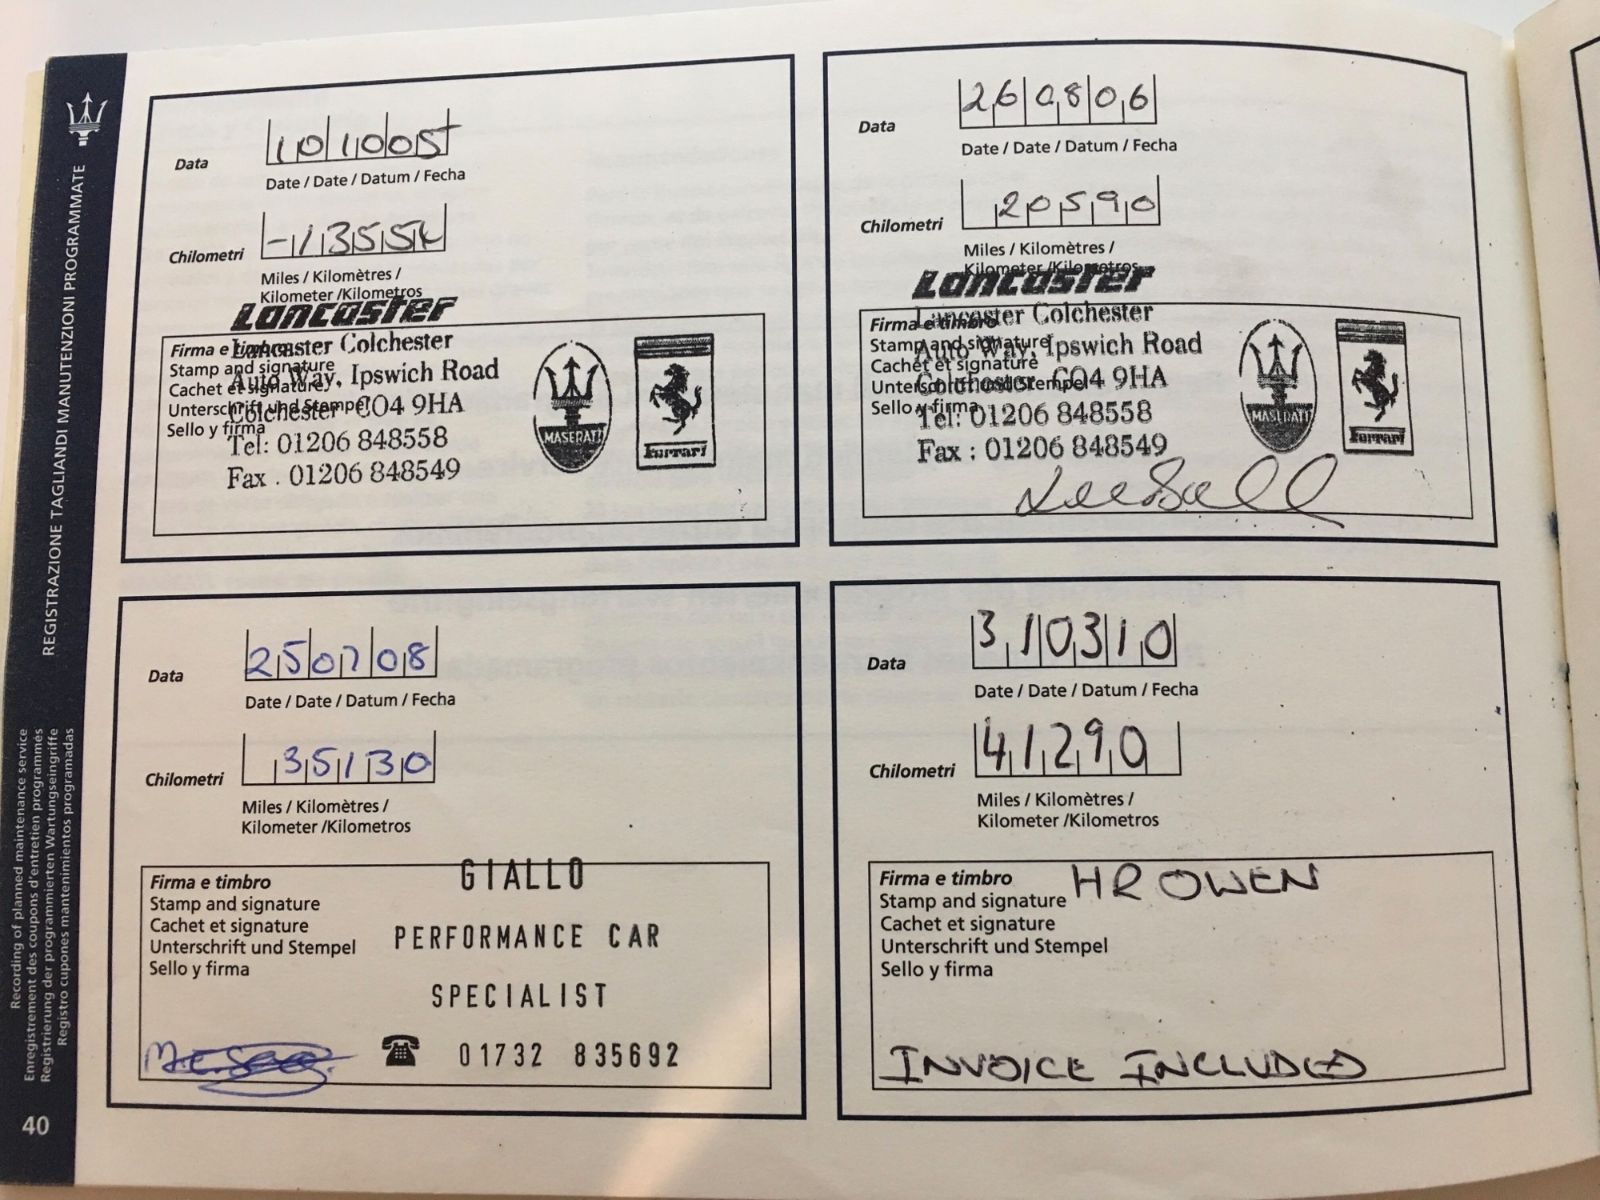 REGISTRAZIONE TAGLIANDI MANUTENZIONI PROGRAMMATE
Recording of planned maintenance service
Enregistrement des coupons d'entretien programmés
Registrierung der programmierten Wartungseingriffe
Registro cupones mantenimientos programadas
40
Data 101005
Date / Date / Datum / Fecha
Chilometri -13554
Miles / Kilomètres /
Kilometer /Kilometros
Lancaster
Firma e timbro
Stamp and signature
Cachet et signature
Unterschrift und Stempel
Sello y firma
Lancaster Colchester
Auto Way, Ipswich Road
Colchester CO4 9HA
Tel: 01206 848558
Fax : 01206 848549
MASERATI
Ferrari
Data 260806
Date / Date / Datum / Fecha
Chilometri 20590
Miles / Kilomètres /
Kilometer /Kilometros
Lancaster
Firma e timbro
Stamp and signature
Cachet et signature
Unterschrift und Stempel
Sello y firma
Lancaster Colchester
Auto Way, Ipswich Road
Colchester CO4 9HA
Tel: 01206 848558
Fax : 01206 848549
MASERATI
Ferrari
Data 250708
Date / Date / Datum / Fecha
Chilometri 35130
Miles / Kilomètres /
Kilometer /Kilometros
Firma e timbro
Stamp and signature
Cachet et signature
Unterschrift und Stempel
Sello y firma
GIALLO
PERFORMANCE CAR
SPECIALIST
☎ 01732 835692
Data 310310
Date / Date / Datum / Fecha
Chilometri 41290
Miles / Kilomètres /
Kilometer /Kilometros
Firma e timbro
Stamp and signature
Cachet et signature
Unterschrift und Stempel
Sello y firma
HR OWEN
INVOICE INCLUDED